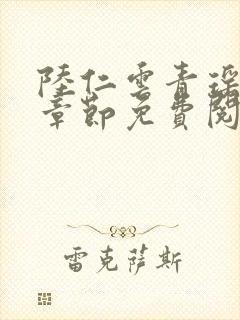 陸仁雲青瑤
章節免費閱
雷克薩斯